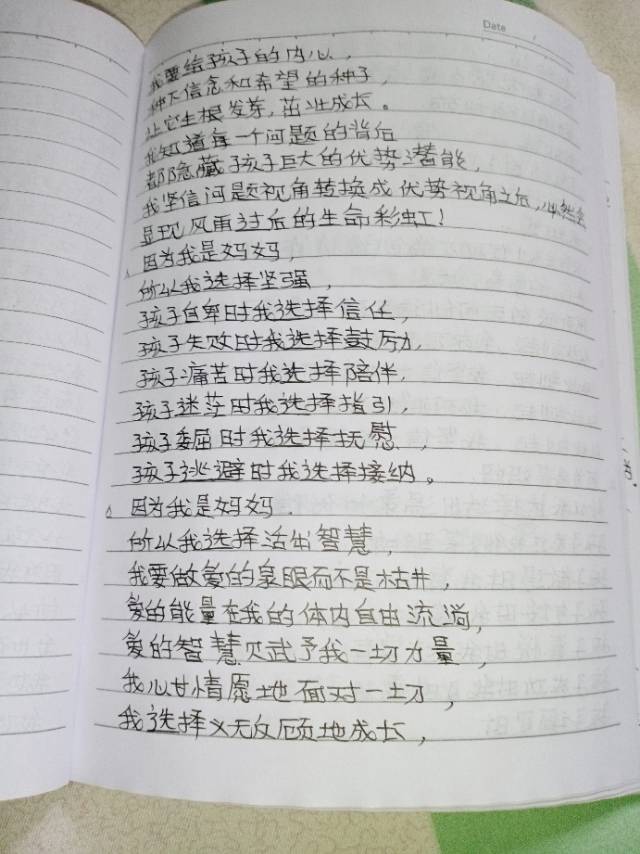 Date
我要给孩子的内心，
种下信念和希望的种子，
让它生根发芽，茁壮成长。
我知道每一个问题的背后
都隐藏孩子巨大的优势潜能，
我坚信问题视角转换成优势视角之后，必然会
显现风雨过后的生命彩虹！
因为我是妈妈，
所以我选择坚强，
孩子自卑时我选择信任，
孩子失败时我选择鼓励，
孩子痛苦时我选择陪伴，
孩子迷茫时我选择指引，
孩子委屈时我选择抚慰，
孩子逃避时我选择接纳。
因为我是妈妈．
所以我选择活出智慧，
我要做爱的泉眼而不是枯井，
爱的能量在我的体内自由流淌，
爱的智慧赋予我一切力量，
我心甘情愿地面对一切，
我选择义无反顾地成长，